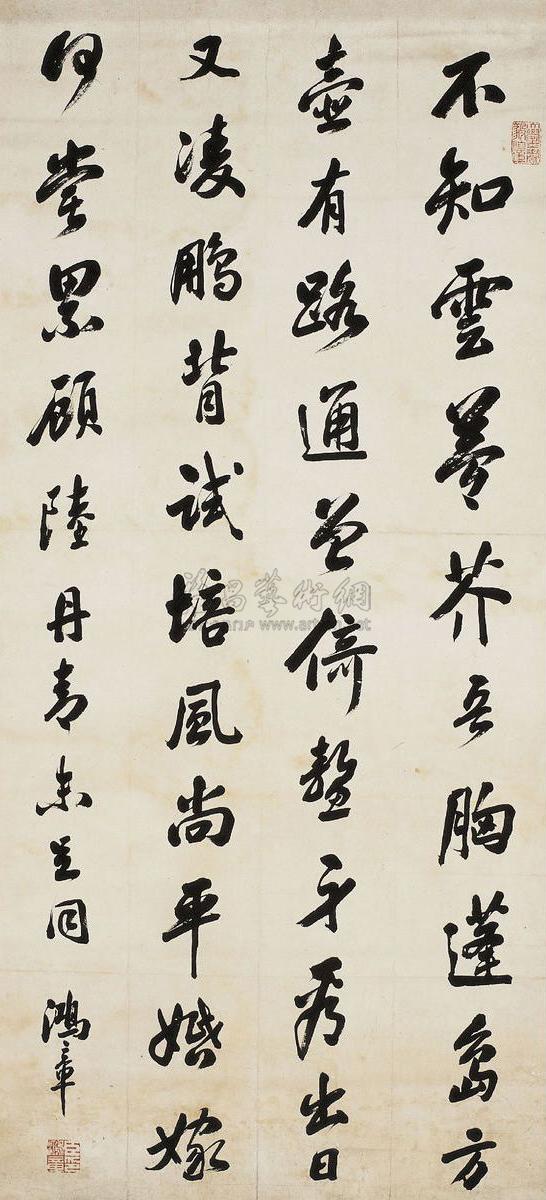 不知雲夢芥吾胸蓬島方
壺有路通曾倚鼇身看出日
又凌鵬背試培風尚平婚嫁
何嘗累顧陸丹青未足同
鴻章
雅昌藝術網